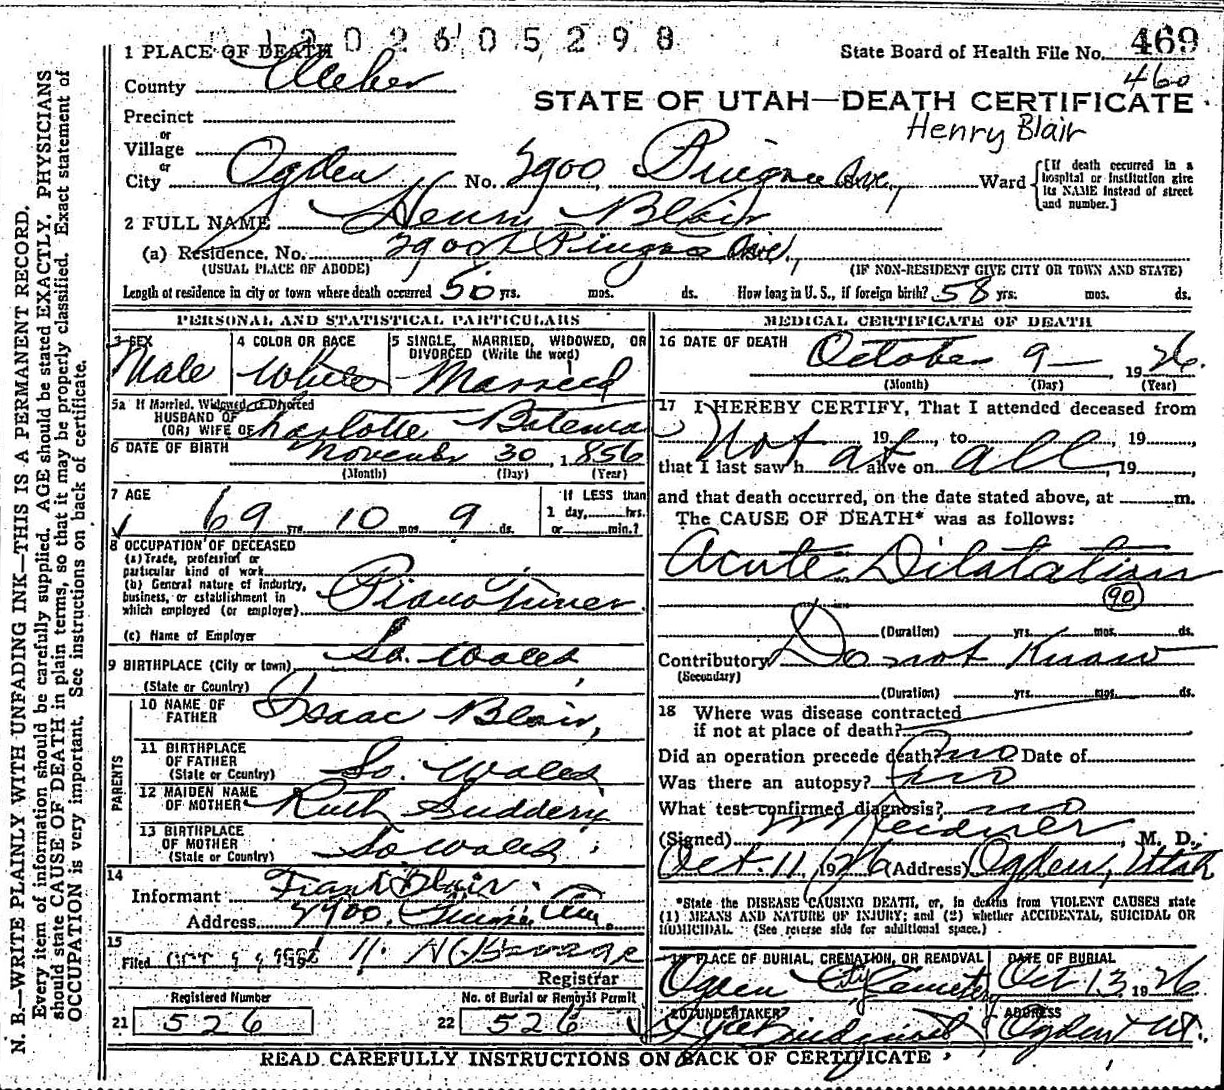 12026052 98
1 PLACE OF DEATH
State Board of Health File No. 469
460
County Weber
STATE OF UTAH—DEATH CERTIFICATE
Henry Blair
Precinct
or
Village
or
City Ogden No. 2900 Pingree Ave., Ward
[If death occurred in a hospital or institution give its NAME instead of street and number.]
2 FULL NAME Henry Blair
(a) Residence, No. 2900 Pingree Ave.,
(USUAL PLACE OF ABODE) (IF NON-RESIDENT GIVE CITY OR TOWN AND STATE)
Length of residence in city or town where death occurred 50 yrs. mos. ds. How long in U.S., if foreign birth? 58 yrs. mos. ds.
PERSONAL AND STATISTICAL PARTICULARS
3 SEX
Male
4 COLOR OR RACE
White
5 SINGLE, MARRIED, WIDOWED, OR DIVORCED (Write the word)
Married
5a If Married, Widowed, or Divorced
HUSBAND OF
(OR) WIFE OF Charlotte Bateman
6 DATE OF BIRTH November 30, 1856
(Month) (Day) (Year)
7 AGE
69 yrs. 10 mos. 9 ds.
If LESS than
1 day,......hrs.
or......min.?
8 OCCUPATION OF DECEASED
(a) Trade, profession or
particular kind of work
(b) General nature of industry,
business, or establishment in
which employed (or employer) Piano Tuner
(c) Name of Employer
9 BIRTHPLACE (City or town) So. Wales
(State or Country)
PARENTS
10 NAME OF
FATHER Isaac Blair,
11 BIRTHPLACE
OF FATHER
(State or Country) So. Wales
12 MAIDEN NAME
OF MOTHER Ruth Suddery
13 BIRTHPLACE
OF MOTHER
(State or Country) So Wales
14
Informant Frank Blair
Address 2900 Pingree Ave.
15
Filed OCT
Registrar
Registered Number
21 526
No. of Burial or Removal Permit
22 526
MEDICAL CERTIFICATE OF DEATH
16 DATE OF DEATH
October 9— 1926.
(Month) (Day) (Year)
17 I HEREBY CERTIFY, That I attended deceased from
Not 19 , to , 19 ,
that I last saw h at alive on all , 19
and that death occurred, on the date stated above, at m.
The CAUSE OF DEATH* was as follows:
Acute Dilatation
90
(Duration) yrs. mos. ds.
Contributory Do not Know
(Secondary)
(Duration) yrs. mos. ds.
18 Where was disease contracted
if not at place of death?
Did an operation precede death? no Date of
Was there an autopsy? no
What test confirmed diagnosis? no
(Signed) , M. D.
Oct. 11, 1926 (Address) Ogden, Utah
*State the DISEASE CAUSING DEATH, or, in deaths from VIOLENT CAUSES state
(1) MEANS AND NATURE OF INJURY; and (2) whether ACCIDENTAL, SUICIDAL OR
HOMICIDAL. (See reverse side for additional space.)
19 PLACE OF BURIAL, CREMATION, OR REMOVAL
Ogden City Cemetery
DATE OF BURIAL
Oct 13 1926
20 UNDERTAKER
ADDRESS
Ogden Ut.
READ CAREFULLY INSTRUCTIONS ON BACK OF CERTIFICATE
N. B.—WRITE PLAINLY WITH UNFADING INK—THIS IS A PERMANENT RECORD.
Every item of information should be carefully supplied. AGE should be stated EXACTLY. PHYSICIANS
should state CAUSE OF DEATH in plain terms, so that it may be properly classified. Exact statement of
OCCUPATION is very important. See instructions on back of certificate.